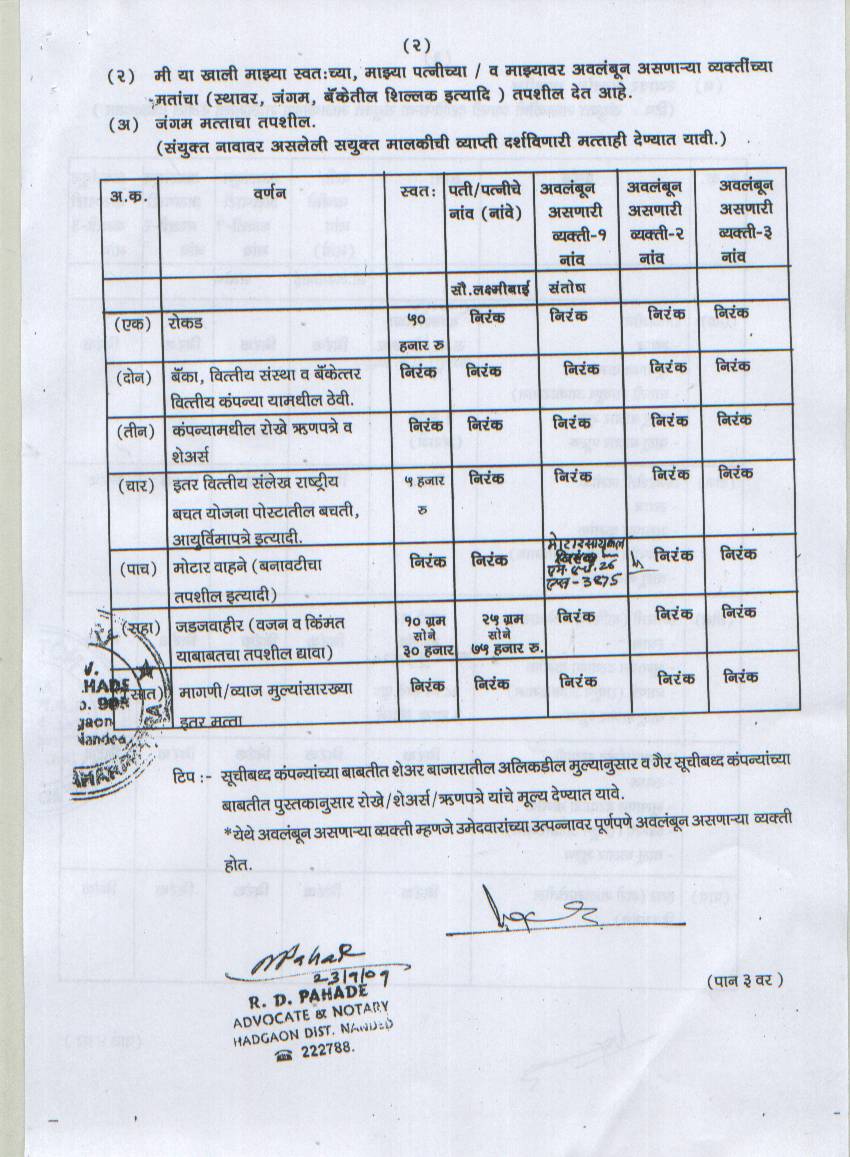 (२)
(२) मी या खाली माझ्या स्वतःच्या, माझ्या पत्नीच्या / व माझ्यावर अवलंबून असणाऱ्या व्यक्तींच्या
मतांचा (स्थावर, जंगम, बॅकेतील शिल्लक इत्यादि ) तपशील देत आहे.
(अ) जंगम मत्ताचा तपशील.
(संयुक्त नावावर असलेली सयुक्त मालकीची व्याप्ती दर्शविणारी मत्ताही देण्यात यावी.)
अ.क. वर्णन स्वतः पती/पत्नीचे अवलंबून अवलंबून अवलंबून
नांव (नांवे) असणारी असणारी असणारी
व्यक्ती-१ व्यक्ती-२ व्यक्ती-३
नांव नांव नांव
सौ.लक्ष्मीबाई संतोष
(एक) रोकड ५० निरंक निरंक निरंक निरंक
हजार रु
(दोन) बॅका, वित्तीय संस्था व बॅकेत्तर निरंक निरंक निरंक निरंक निरंक
वित्तीय कंपन्या यामधील ठेवी.
(तीन) कंपन्यामधील रोखे ऋणपत्रे व निरंक निरंक निरंक निरंक निरंक
शेअर्स
(चार) इतर वित्तीय संलेख राष्ट्रीय ५ हजार निरंक निरंक निरंक निरंक
बचत योजना पोस्टातील बचती, रु
आयुर्विमापत्रे इत्यादी.
(पाच) मोटार वाहने (बनावटीचा निरंक निरंक मोटारसायकल निरंक निरंक
तपशील इत्यादी) निरंक
एम.एच.26
एल-3875
(सहा) जडजवाहीर (वजन व किंमत १० ग्रम २५ ग्रम निरंक निरंक निरंक
याबाबतचा तपशील द्यावा) सोने सोने
३० हजार ७५ हजार रु.
(सात) मागणी/व्याज मुल्यांसारख्या निरंक निरंक निरंक निरंक निरंक
इतर मत्ता
टिप :- सूचीबध्द कंपन्यांच्या बाबतीत शेअर बाजारातील अलिकडील मुल्यानुसार व गैर सूचीबध्द कंपन्यांच्या
बाबतीत पुस्तकानुसार रोखे/शेअर्स/ऋणपत्रे यांचे मूल्य देण्यात यावे.
*येथे अवलंबून असणाऱ्या व्यक्ती म्हणजे उमेदवारांच्या उत्पन्नावर पूर्णपणे अवलंबून असणाऱ्या व्यक्ती
होत.
23/9/09
R. D. PAHADE
ADVOCATE & NOTARY
HADGAON DIST. NANDED
☎ 222788.
(पान ३ वर )